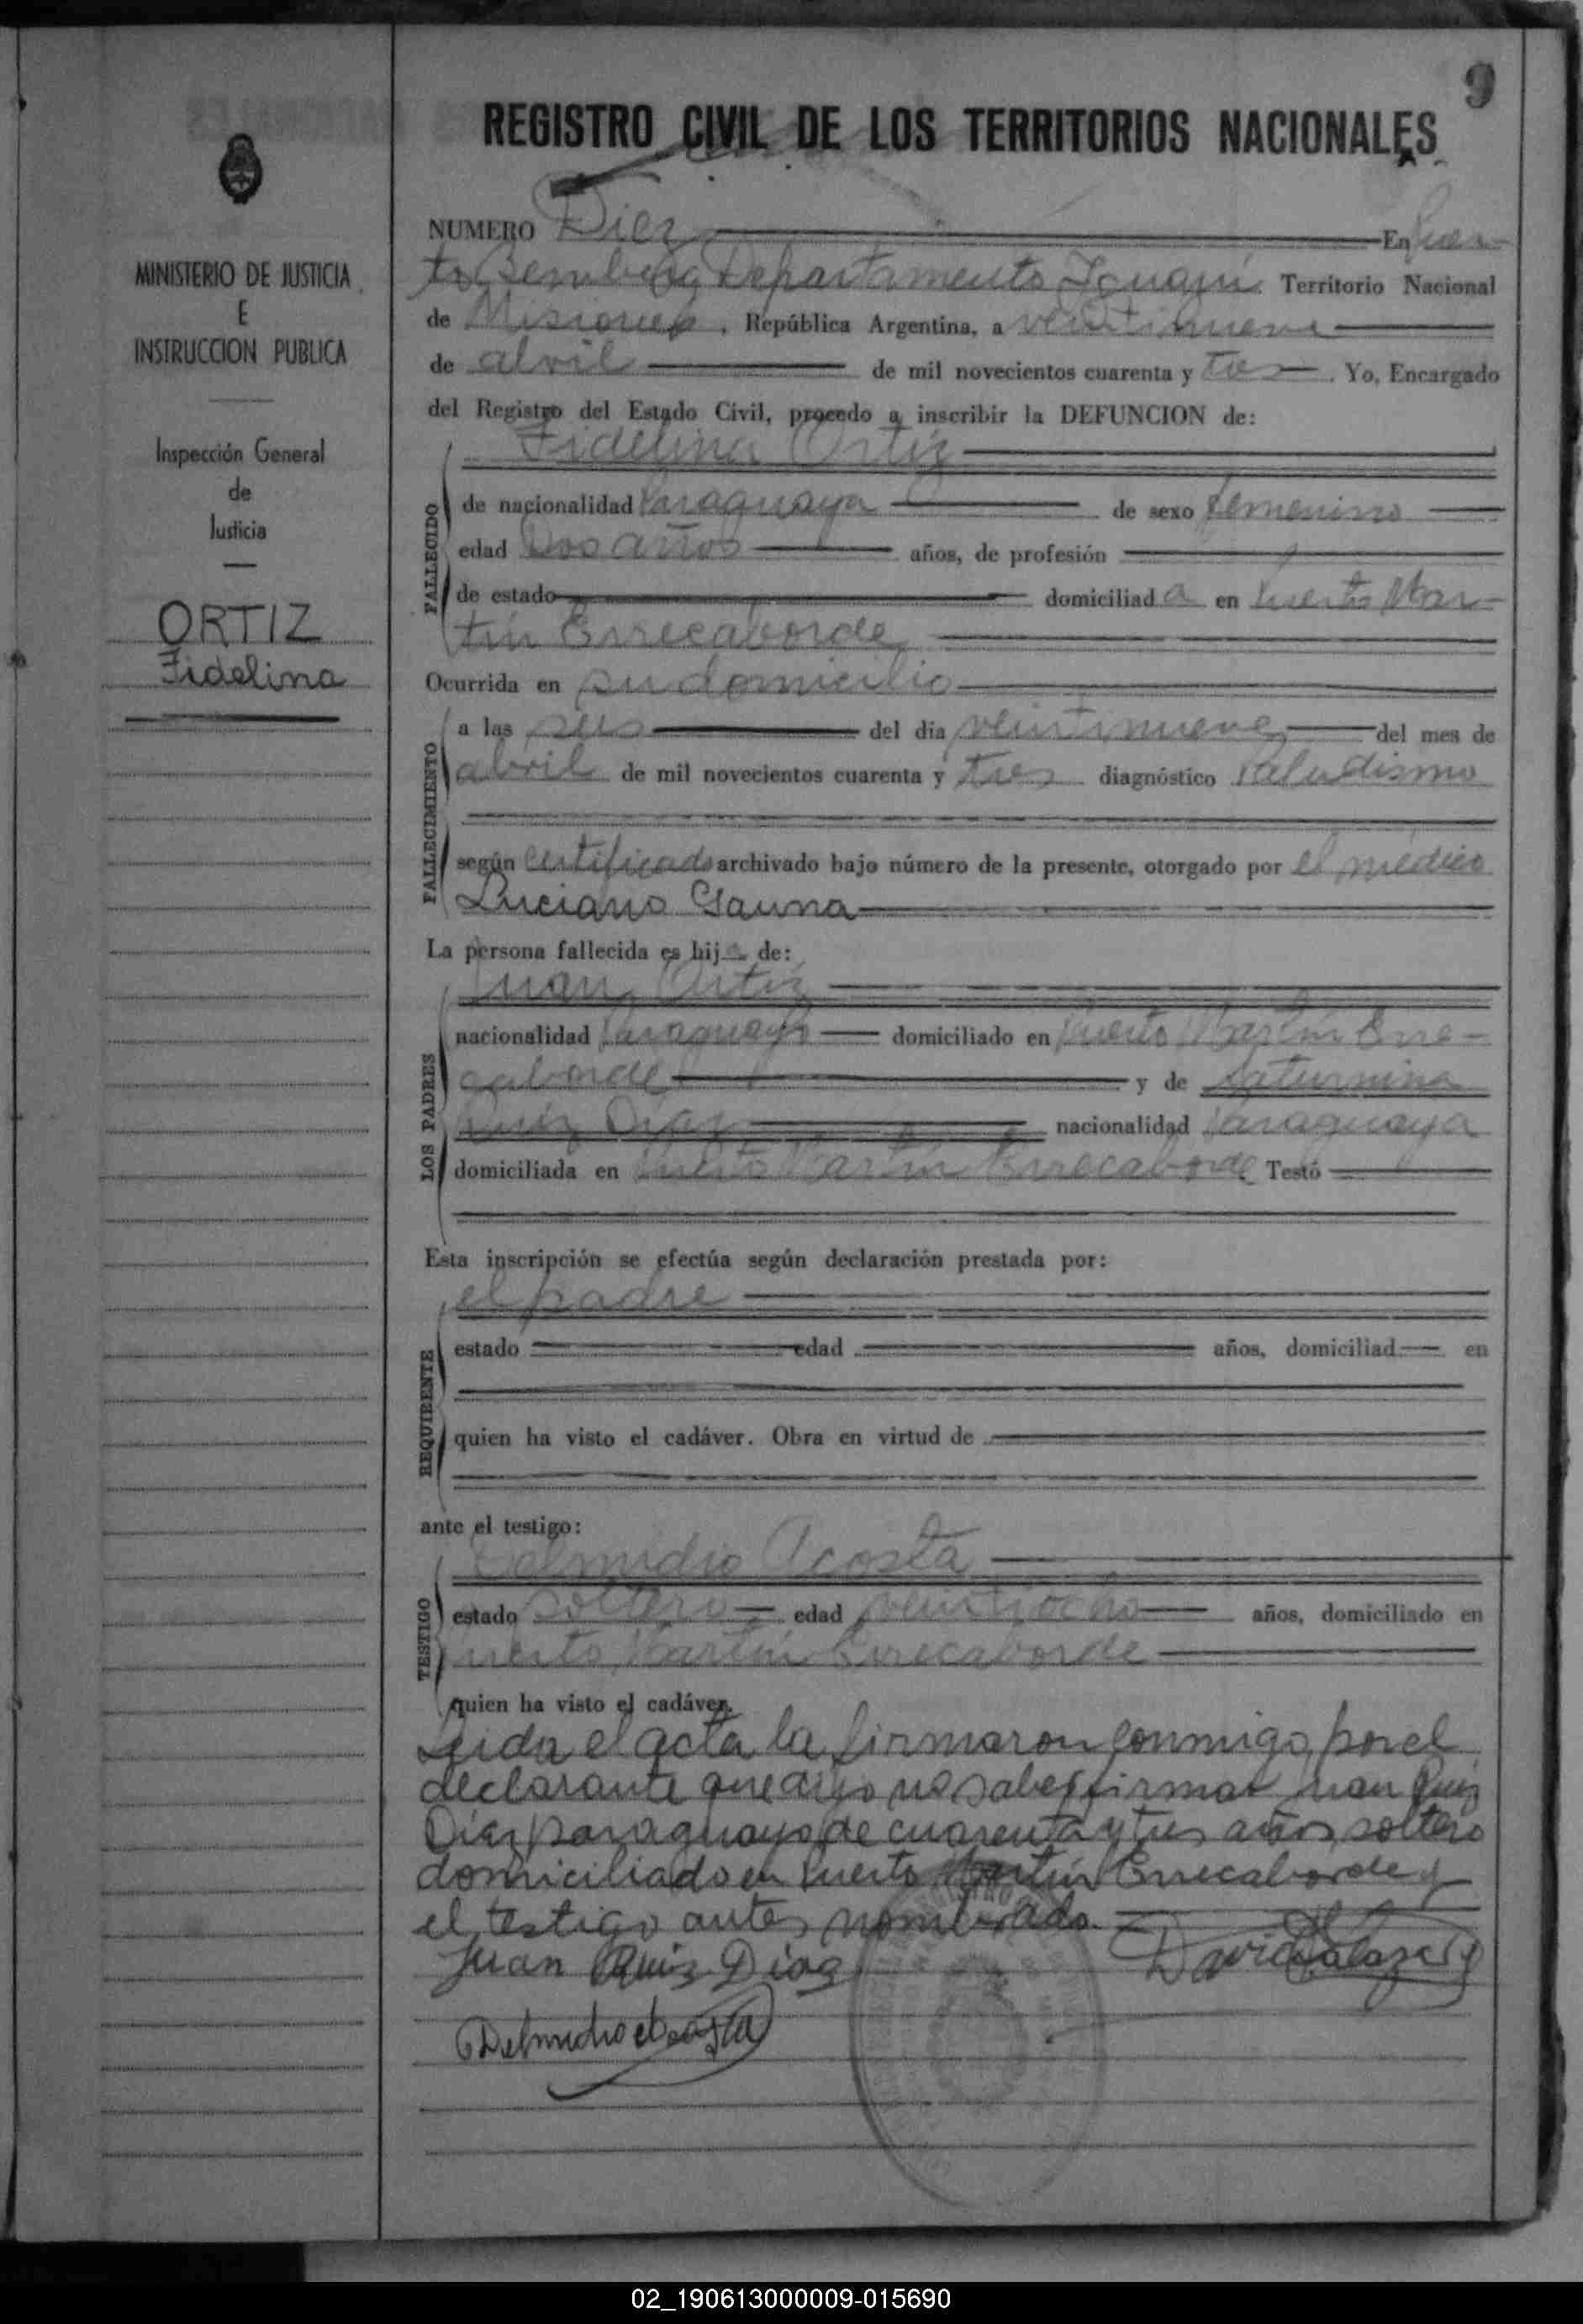 9
REGISTRO CIVIL DE LOS TERRITORIOS NACIONALES
MINISTERIO DE JUSTICIA
E
INSTRUCCION PUBLICA
Inspección General
de
Justicia
ORTIZ
Fidelina
NUMERO Diez En Puer-
to Bemberg Departamento Iguazú Territorio Nacional
de Misiones, República Argentina, a veintinueve
de abril de mil novecientos cuarenta y tres. Yo, Encargado
del Registro del Estado Civil, procedo a inscribir la DEFUNCION de:
Fidelina Ortiz
FALLECIDO
de nacionalidad Paraguaya de sexo femenino
edad Dos años años, de profesión
de estado domiciliada en Puerto Mar-
tín Errecaborde
Ocurrida en su domicilio
FALLECIMIENTO
a las seis del día veintinueve del mes de
abril de mil novecientos cuarenta y tres diagnóstico Paludismo
según certificado archivado bajo número de la presente, otorgado por el médico
Luciano Gauna
La persona fallecida es hija de:
Juan Ortiz
LOS PADRES
nacionalidad Paraguayo domiciliado en Puerto Martín Erre-
caborde y de Saturnina
Ruiz Diaz nacionalidad Paraguaya
domiciliada en Puerto Martín Errecaborde Testó
Esta inscripción se efectúa según declaración prestada por:
el padre
REQUIRENTE
estado edad años, domiciliad en
quien ha visto el cadáver. Obra en virtud de
ante el testigo:
Delmidio Acosta
TESTIGO
estado soltero edad veintiocho años, domiciliado en
Puerto Martín Errecaborde
quien ha visto el cadáver.
Leida el acta la firmaron conmigo, por el
declarante que dijo no saber firmar Juan Ruiz
Diaz paraguayo de cuarenta y tres años, soltero
domiciliado en Puerto Martín Errecaborde y
el testigo antes nombrado.
Juan Ruiz Diaz
Delmidio Acosta
02_190613000009-015690